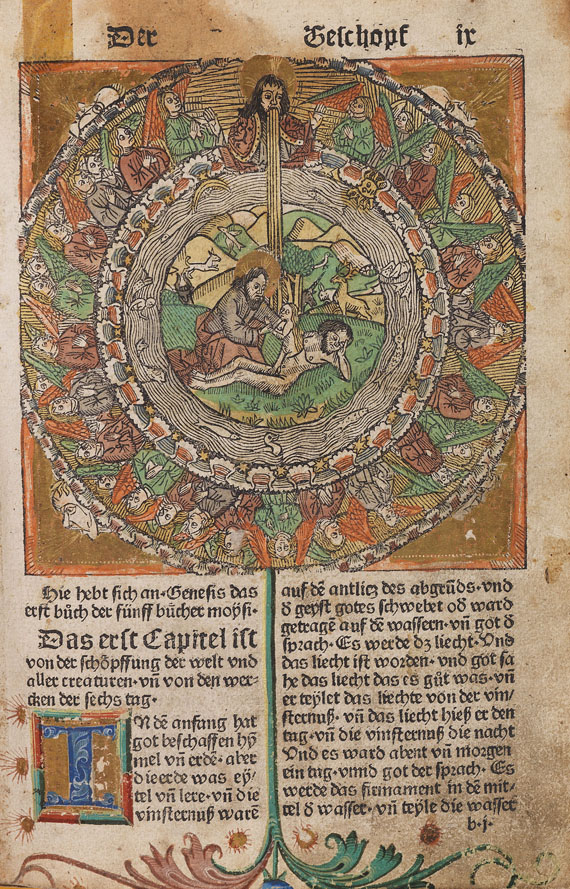 Der Geschöpf ix
Hie hebt sich an·Genesis das
erst bůch der fünff bůcher moysi·
Das erst Capitel ist
von der schöpffung der welt vnd
aller creaturen·vñ von den wer-
cken der sechs tag·
IN dẽ anfang hat
got beschaffen hÿ
mel vñ erdẽ·aber
die erde was eÿ-
tel vñ lere·vñ die
vinsternuß warẽ
auf dẽ antlicz des abgrũds·vnd
d geyst gotes schwebet od ward
getragẽ auf dẽ wassern·vñ got d
sprach·Es werde dz liecht·Vnd
das liecht ist worden·vnd got sa
he das liecht das es gůt was·vñ
er teÿlet das liechte von der vin-
sternuß·vñ das liecht hieß er den
tag·vñ die vinsternuß die nacht
Vnd es ward abent vñ morgen
ein tag·vnnd got der sprach·Es
werde das firmament in dẽ mit-
tel d wasser·vñ teyle die wasser
b·j·